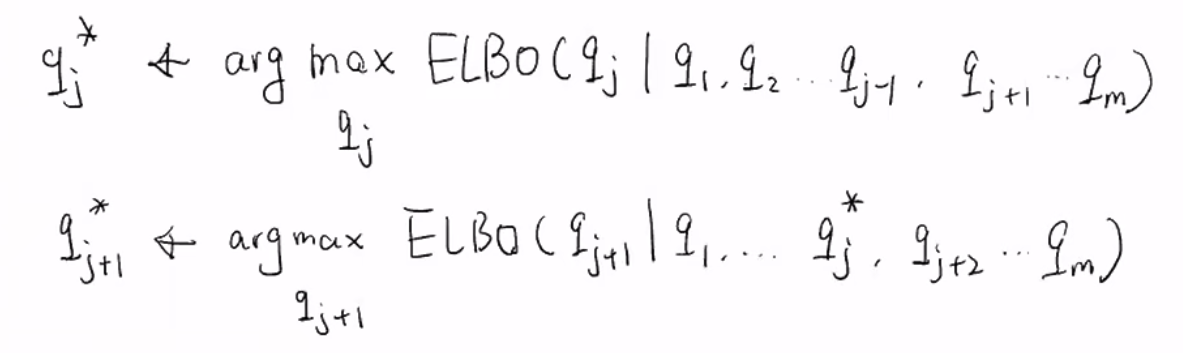 q_j^* ← arg max ELBO(q_j | q_1, q_2 ... q_{j-1}, q_{j+1} ... q_m)
q_j
q_{j+1}^* ← argmax ELBO(q_{j+1} | q_1, .... q_j^*, q_{j+2} ... q_m)
q_{j+1}